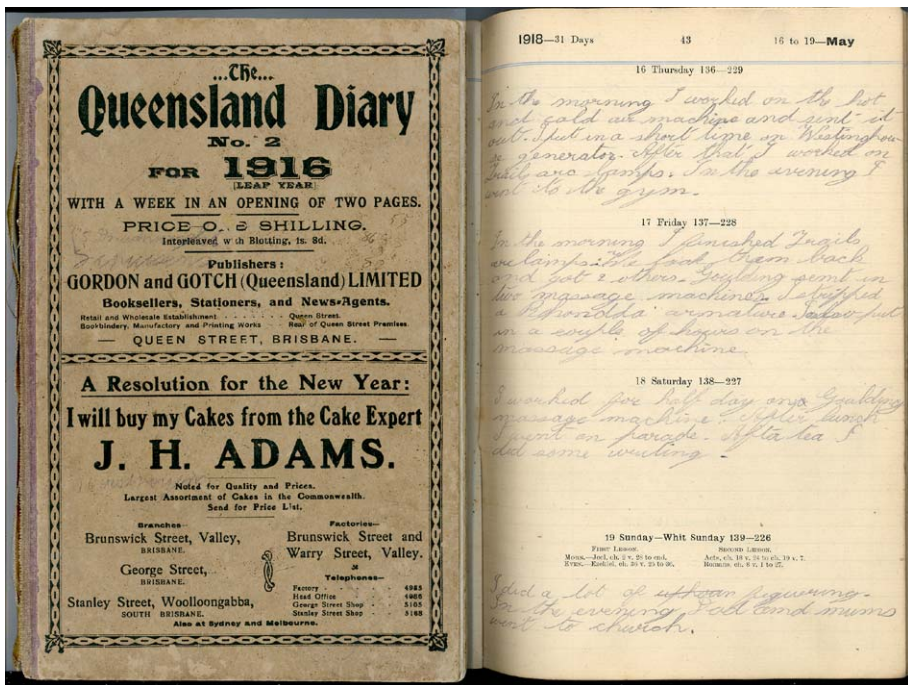 ...The...
Queensland Diary
No. 2
FOR 1916
[LEAP YEAR]
WITH A WEEK IN AN OPENING OF TWO PAGES.
PRICE O. E SHILLING.
Interleaved with Blotting, 1s. 3d.
Publishers:
GORDON and GOTCH (Queensland) LIMITED
Booksellers, Stationers, and News-Agents.
Retail and Wholesale Establishment - - - - - - - Queen Street.
Bookbindery, Manufactory and Printing Works - - Rear of Queen Street Premises.
— QUEEN STREET, BRISBANE. —
A Resolution for the New Year:
I will buy my Cakes from the Cake Expert
J. H. ADAMS.
Noted for Quality and Prices.
Largest Assortment of Cakes in the Commonwealth.
Send for Price List.
Branches—
Brunswick Street, Valley,
BRISBANE.
George Street,
BRISBANE.
Stanley Street, Woolloongabba,
SOUTH BRISBANE.
Factories—
Brunswick Street and
Warry Street, Valley.
Telephones—
Factory - - - 4985
Head Office - - 4966
George Street Shop - 3105
Stanley Street Shop - 3188
Also at Sydney and Melbourne.
1918—31 Days 43 16 to 19—May
16 Thursday 136—229
In the morning I worked on the hot
and cold air machine and sent it
out. I put in a short time on Westinghou-
se generator. After that I worked on
Trails arc lamps. In the evening I
went to the gym.
17 Friday 137—228
In the morning I finished Trails
arc lamps. We took them back
and got 2 others. Goulding sent in
two massage machines. I stripped
a armature. Also put
in a couple of hours on the
massage machine.
18 Saturday 138—227
I worked for half day on a Goulding
massage machine. After lunch
I went on parade. After tea I
did some writing.
19 Sunday—Whit Sunday 139—226
FIRST LESSON. SECOND LESSON.
MORN.—Joel, ch. 2 v. 28 to end. Acts, ch. 18 v. 24 to ch. 19 v. 7.
EVEN.—Ezekiel, ch. 36 v. 25 to 36. Romans, ch. 8 v. 1 to 27.
I did a lot of figuring.
In the evening Dad and mums
went to church.